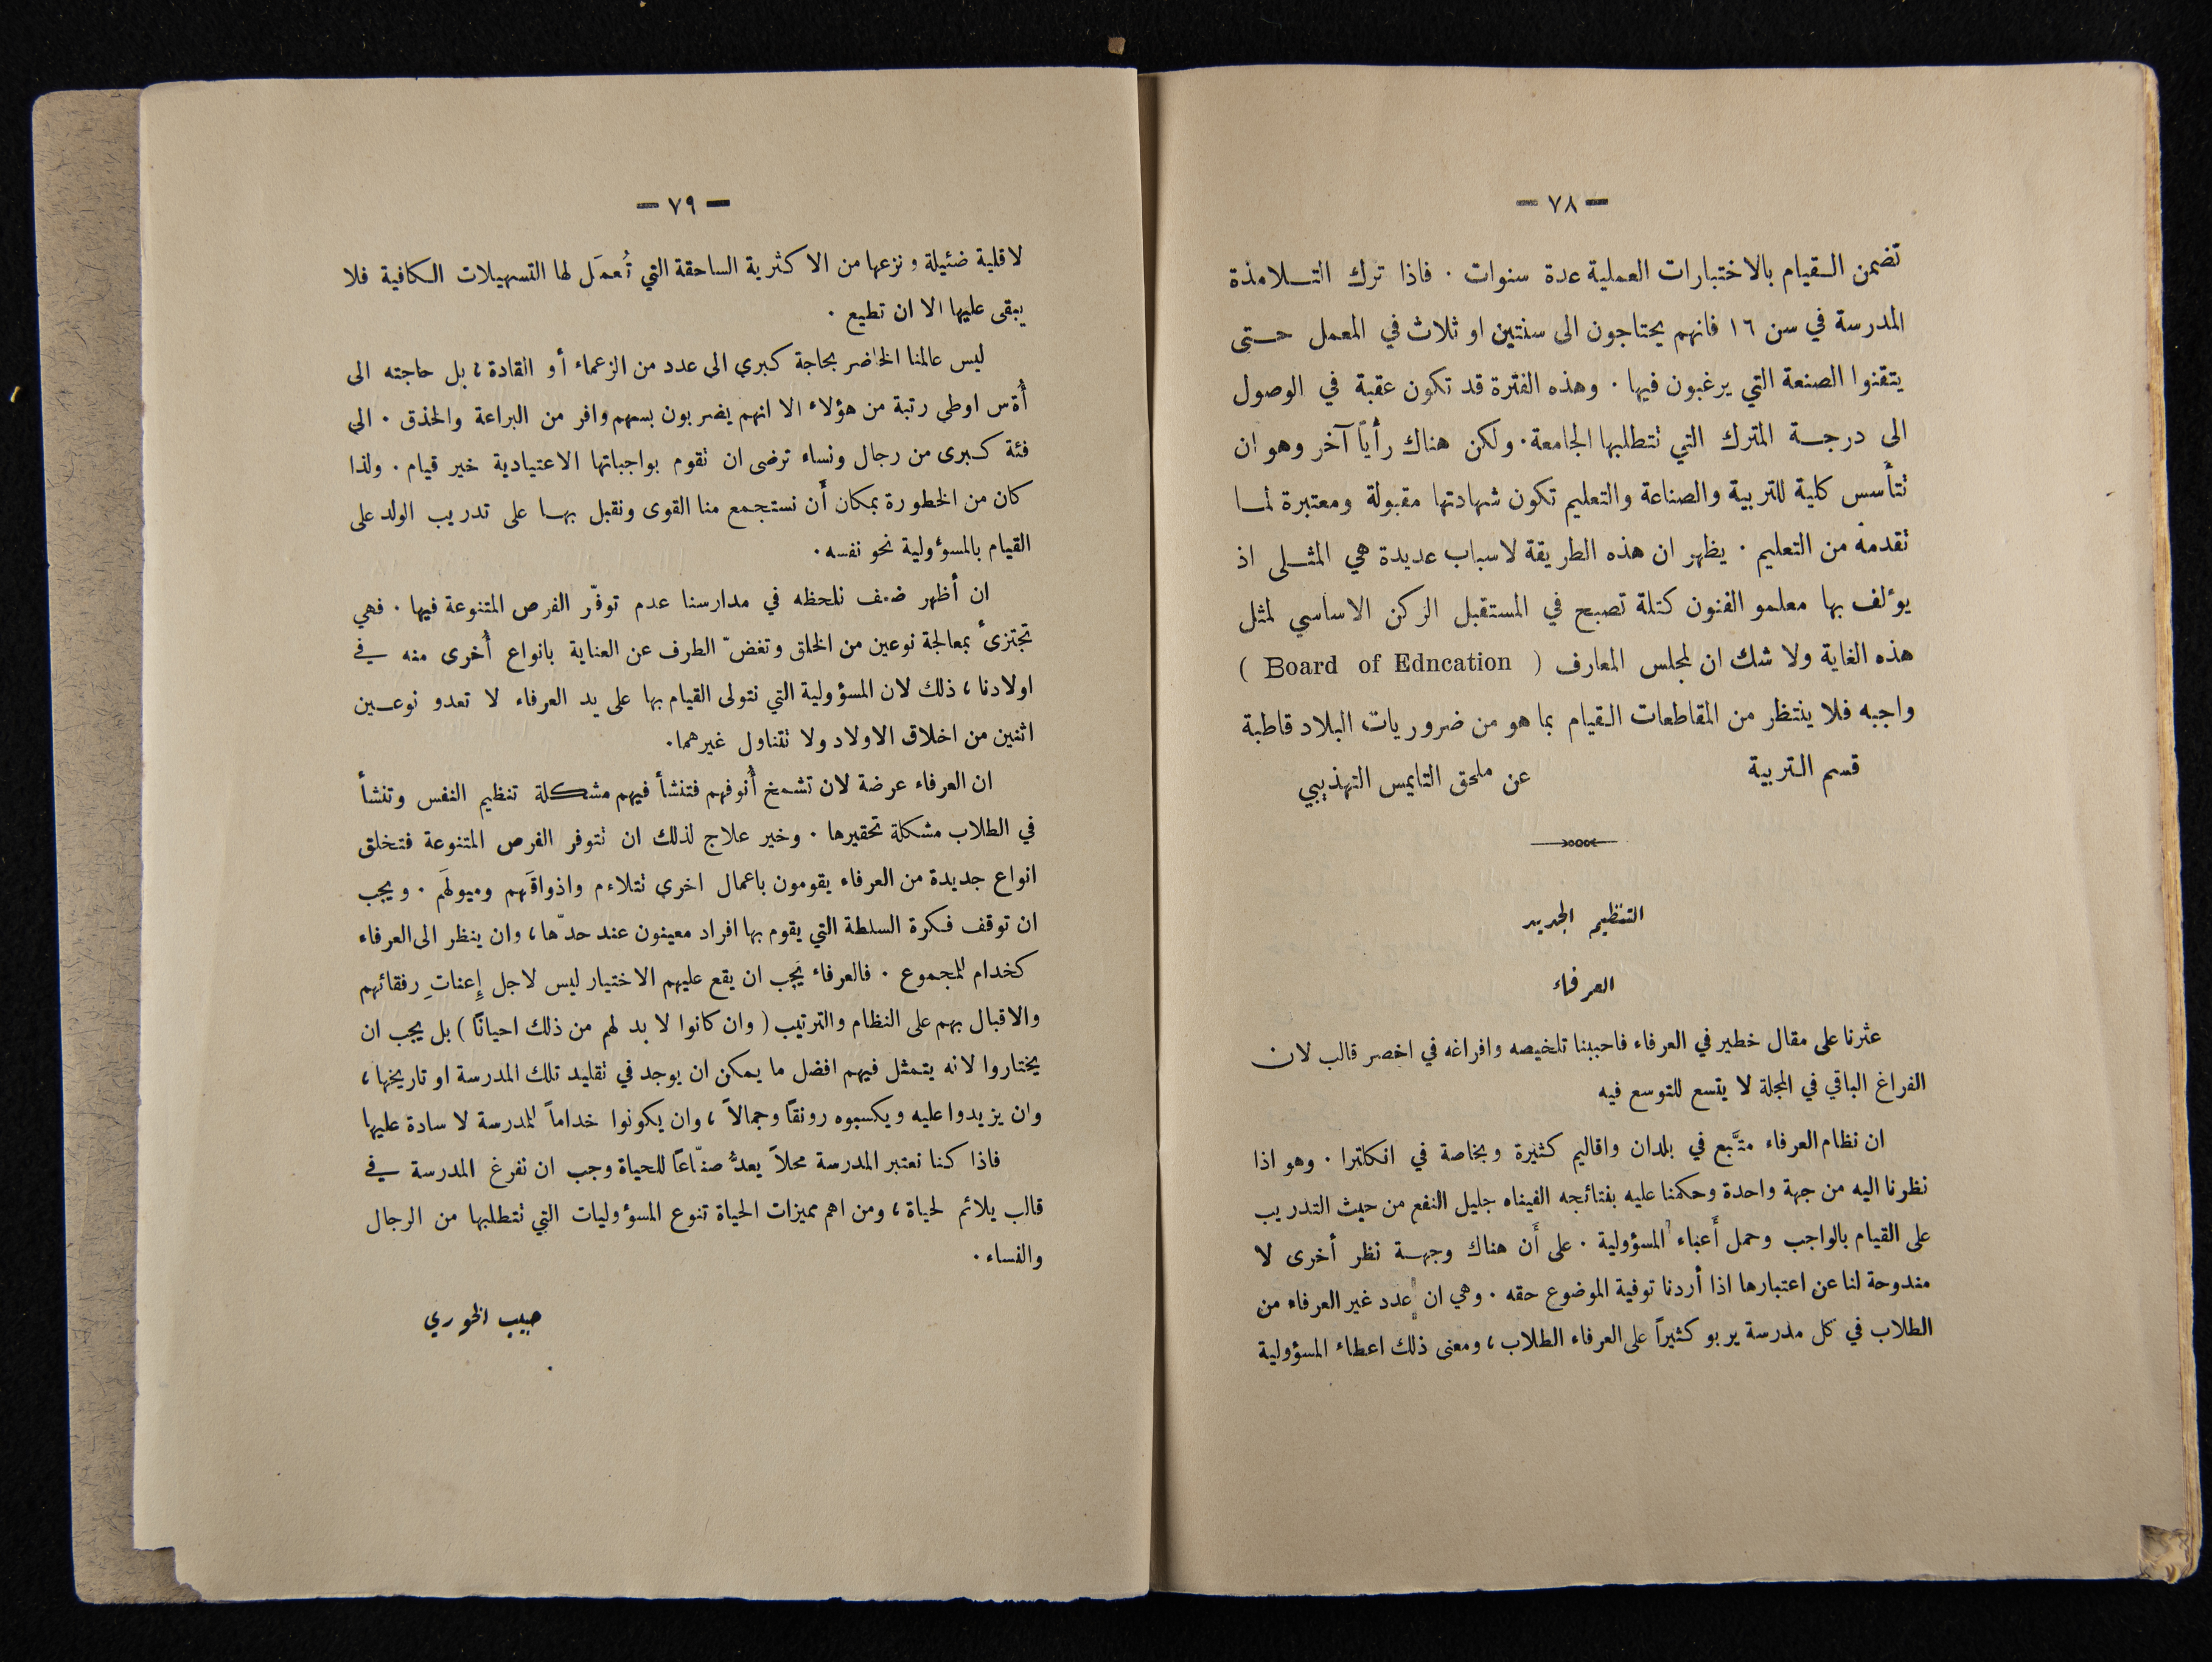 — ٧٨ —
تضمن القيام بالاختبارات العملية عدة سنوات . فاذا ترك التلامذة
المدرسة في سن ١٦ فانهم يحتاجون الى سنتين او ثلاث في المعمل حتى
يتقنوا الصنعة التي يرغبون فيها . وهذه الفترة قد تكون عقبة في الوصول
الى درجة المترك التي تتطلبها الجامعة . ولكن هناك رأياً آخر وهو ان
تتأسس كلية للتربية والصناعة والتعليم تكون شهادتها مقبولة ومعتبرة لما
تقدمه من التعليم . يظهر ان هذه الطريقة لاسباب عديدة هي المثلى اذ
يؤلف بها معلمو الفنون كتلة تصبح في المستقبل الركن الاساسي لمثل
هذه الغاية ولا شك ان لمجلس المعارف ( Board of Edncation )
واجبه فلا ينتظر من المقاطعات القيام بما هو من ضروريات البلاد قاطبة
قسم التربية عن ملحق التايمس التهذيبي
التنظيم الجديد
العرفاء
عثرنا على مقال خطير في العرفاء فاحببنا تلخيصه وافراغه في اخصر قالب لان
الفراغ الباقي في المجلة لا يتسع للتوسع فيه
ان نظام العرفاء متَّبع في بلدان واقاليم كثيرة وبخاصة في انكلترا . وهو اذا
نظرنا اليه من جهة واحدة وحكمنا عليه بفتائجه الفيناه جليل النفع من حيث التدريب
على القيام بالواجب وحمل أَعباء المسؤولية . على أَن هناك وجهة نظر أخرى لا
مندوحة لنا عن اعتبارها اذا أردنا توفية الموضوع حقه . وهي ان عدد غير العرفاء من
الطلاب في كل مدرسة يربو كثيراً على العرفاء الطلاب ، ومعنى ذلك اعطاء المسؤولية
— ٧٩ —
لاقلية ضئيلة ونزعها من الاكثرية الساحقة التي تُعمَل لها التسهيلات الكافية فلا
يبقى عليها الا ان تطيع .
ليس عالمنا الحاضر بحاجة كبرى الى عدد من الزعماء أو القادة ، بل حاجته الى
اوطى رتبة من هؤلاء الا انهم يضربون بسهم وافر من البراعة والحذق . الى
فئة كبرى من رجال ونساء ترضى ان تقوم بواجباتها الاعتيادية خير قيام . ولذا
كان من الخطورة بمكان أَن نستجمع منا القوى ونقبل بها على تدريب الولد على
القيام بالمسؤولية نحو نفسه .
ان أظهر ضعف نلحظه في مدارسنا عدم توفّر الفرص المتنوعة فيها . فهي
تجتزئ بمعالجة نوعين من الخلق وتغضّ الطرف عن العناية بانواع أُخرى منه في
اولادنا ، ذلك لان المسؤولية التي نتولى القيام بها على يد العرفاء لا تعدو نوعين
اثنين من اخلاق الاولاد ولا تتناول غيرهما .
ان العرفاء عرضة لان تشمخ أُنوفهم فتنشأ فيهم مشكلة تنظيم النفس وتنشأ
في الطلاب مشكلة تحقيرها . وخير علاج لذلك ان تتوفر الفرص المتنوعة فتخلق
انواع جديدة من العرفاء يقومون باعمال اخرى تتلاءم واذواقَهم وميولهَم . ويجب
ان توقف فكرة السلطة التي يقوم بها افراد معينون عند حدّها ، وان ينظر الى العرفاء
كخدام للمجموع . فالعرفاء يجب ان يقع عليهم الاختيار ليس لاجل إِعناتِ رفقائهم
والاقبال بهم على النظام والترتيب ( وان كانوا لا بد لهم من ذلك احياناً ) بل يجب ان
يختاروا لانه يتمثل فيهم افضل ما يمكن ان يوجد في تقليد تلك المدرسة او تاريخها ،
وان يزيدوا عليه ويكسبوه رونقاً وجمالاً ، وان يكونوا خداماً للمدرسة لا سادة عليها
فاذا كنا نعتبر المدرسة محلاً يعدُّ صنّاعاً للحياة وجب ان نفرغ المدرسة في
قالب يلائم لحياة ، ومن اهم مميزات الحياة تنوع المسؤوليات التي تتطلبها من الرجال
والفساء .
حبيب الخوري